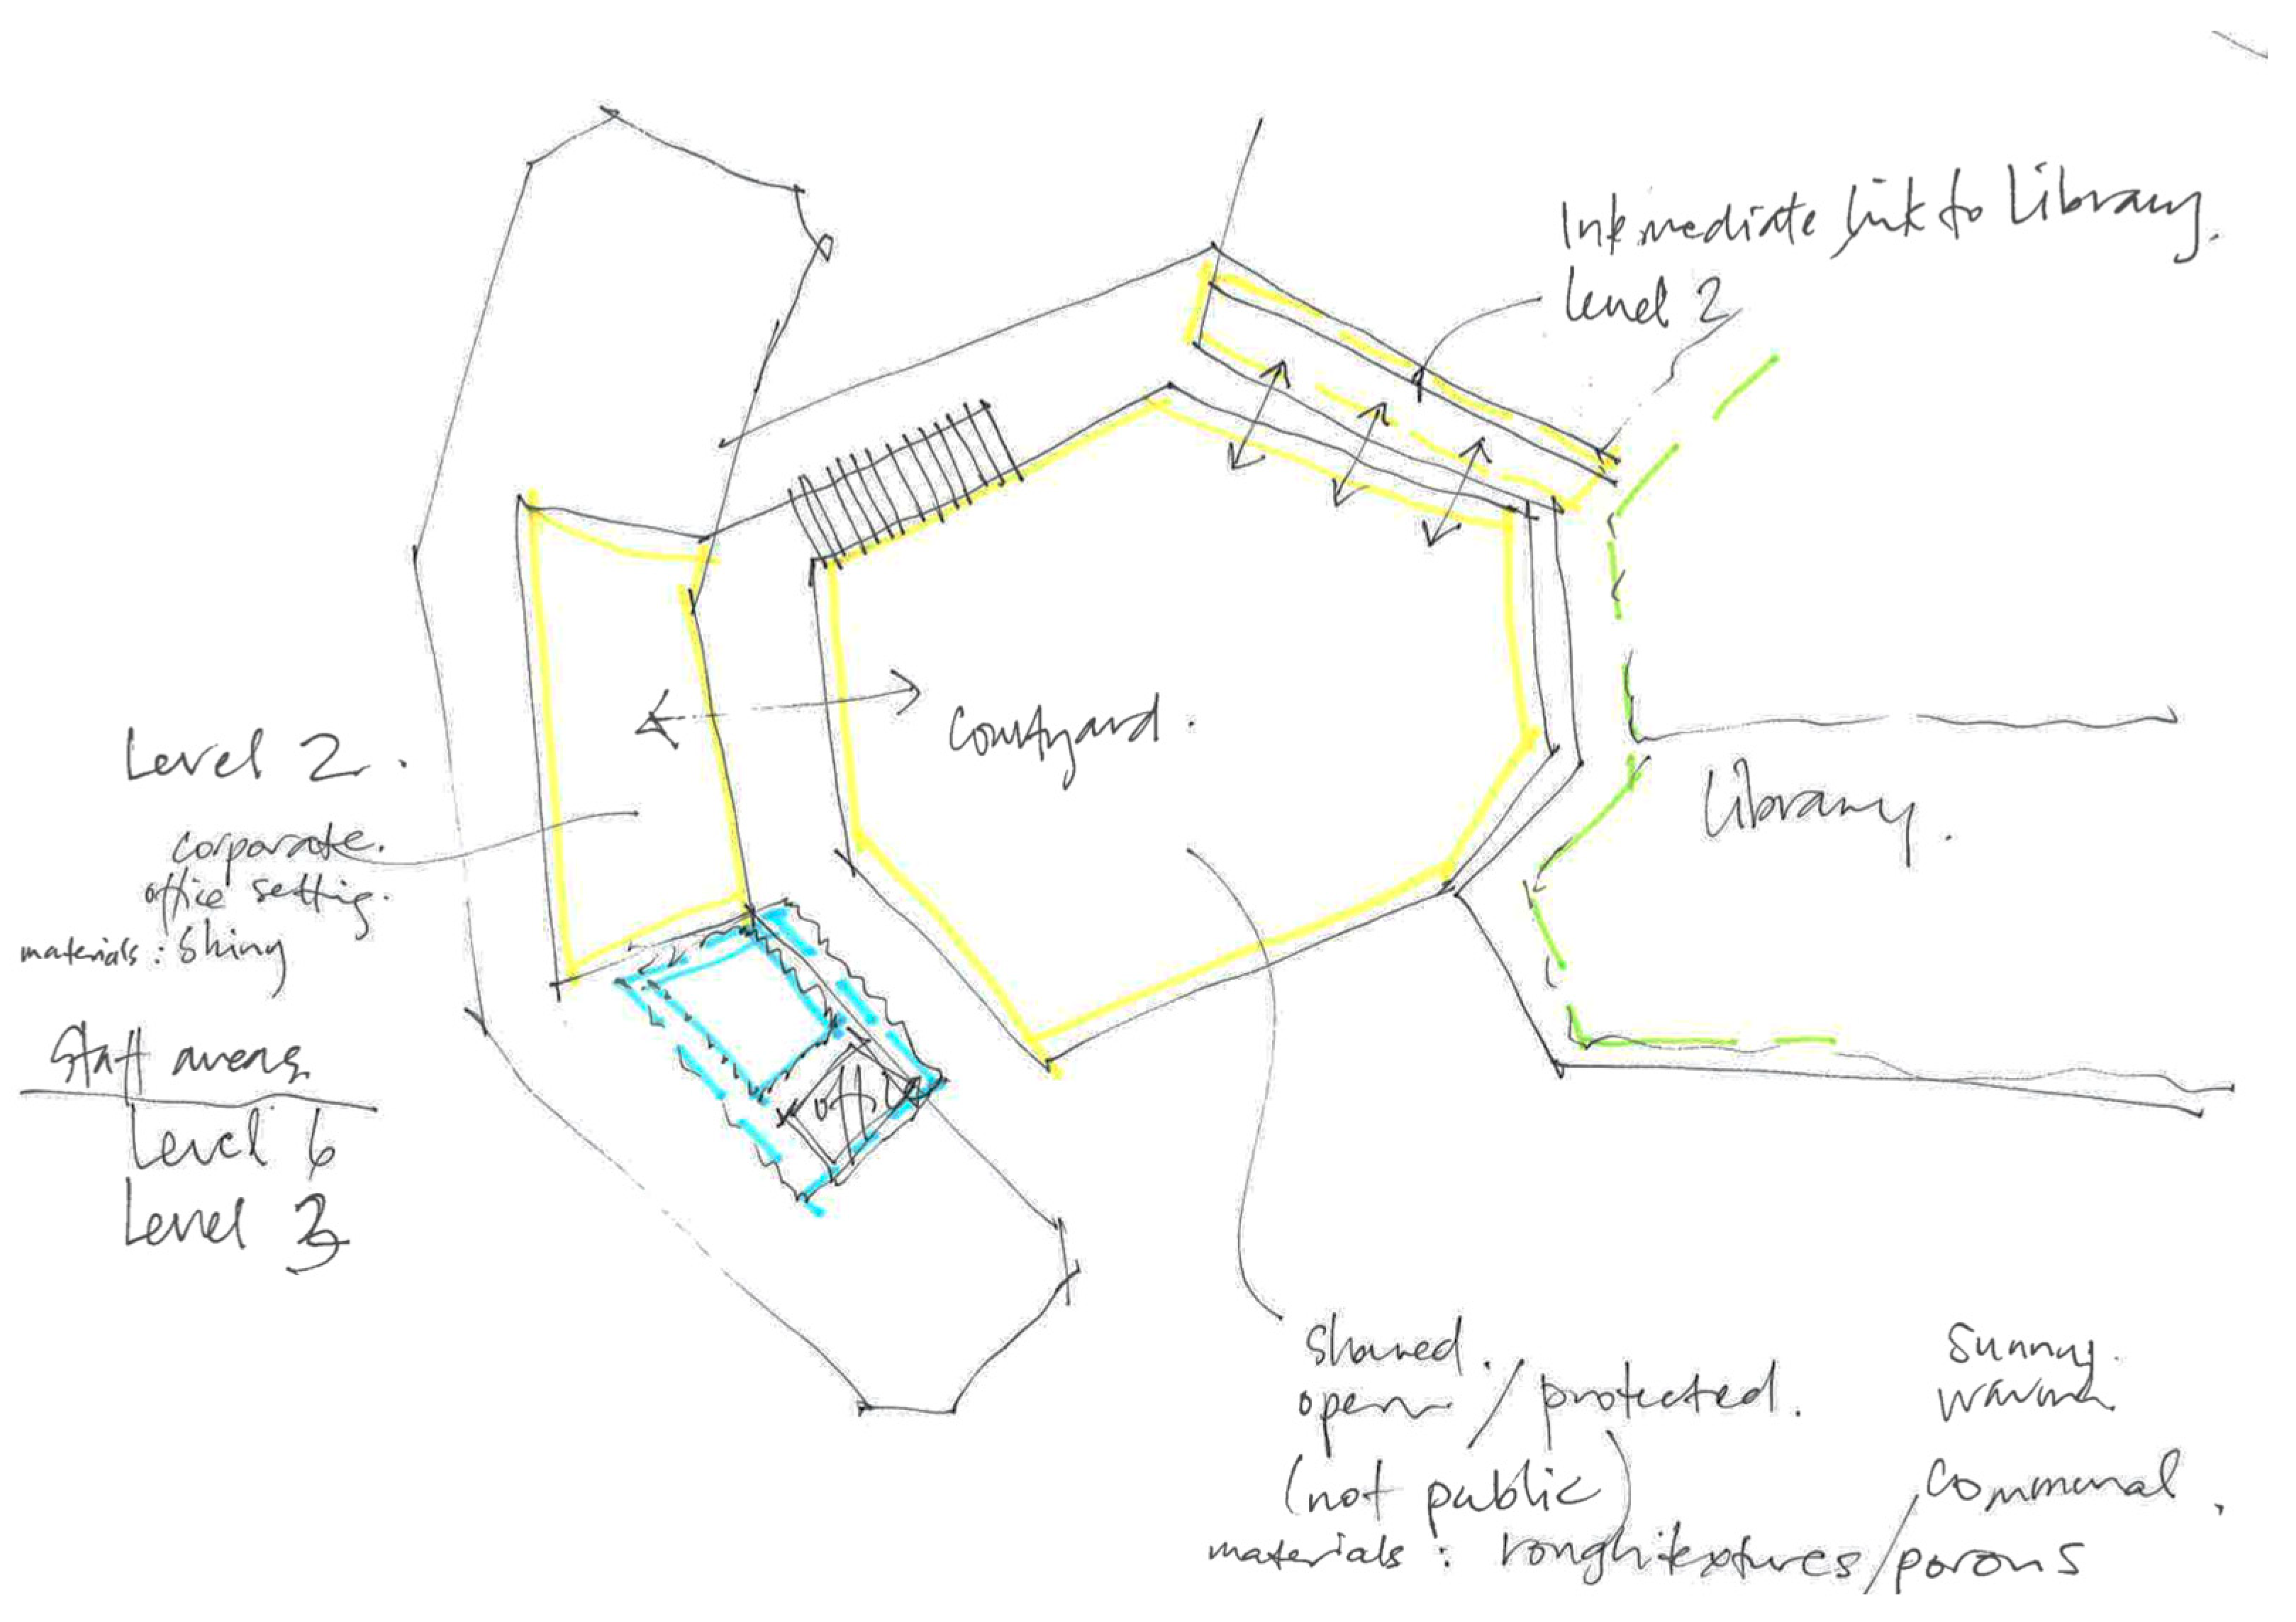 Intermediate link to Library.
Level 2
Courtyard.
Level 2.
corporate.
office setting.
materials: Shiny
Library.
Staff areas
Level 6
Level 3
office
Shared.
open / protected.
(not public)
materials: rough textures / porous
Sunny.
warm.
Communal.